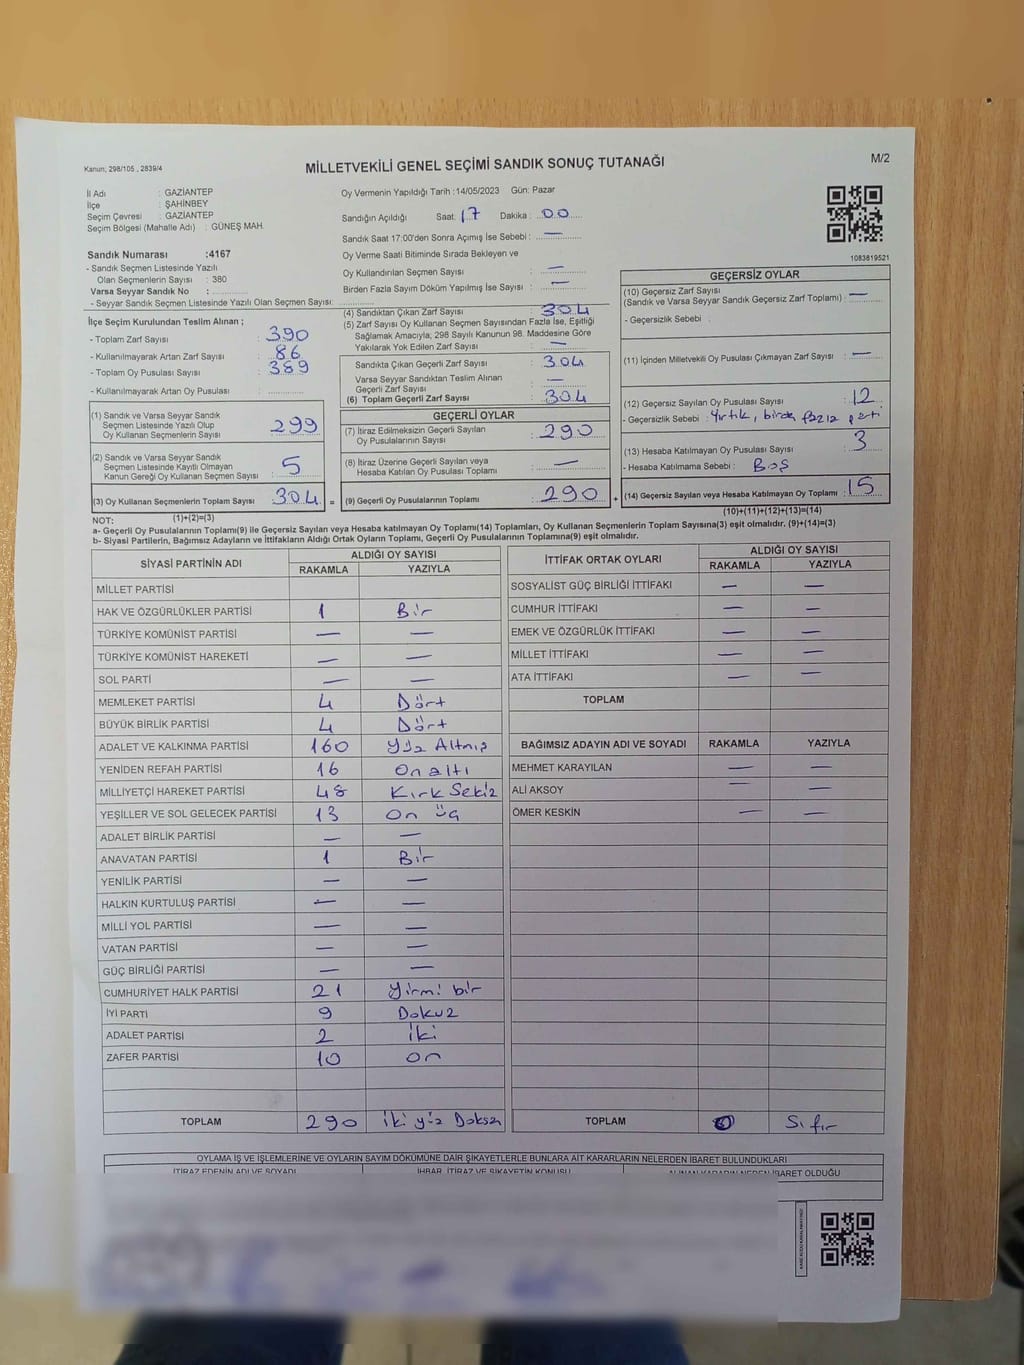 Kanun; 298/105, 2839/4
MİLLETVEKİLİ GENEL SEÇİMİ SANDIK SONUÇ TUTANAĞI
M/2
İl Adı : GAZİANTEP
İlçe : ŞAHİNBEY
Seçim Çevresi : GAZİANTEP
Seçim Bölgesi (Mahalle Adı) : GÜNEŞ MAH.
Oy Vermenin Yapıldığı Tarih :14/05/2023 Gün: Pazar
Sandığın Açıldığı Saat: 17 Dakika : 00
Sandık Saat 17:00'den Sonra Açımış İse Sebebi : —
Oy Verme Saati Bitiminde Sırada Bekleyen ve
Oy Kullandırılan Seçmen Sayısı : —
Birden Fazla Sayım Döküm Yapılmış İse Sayısı : —
1083819521
Sandık Numarası :4167
- Sandık Seçmen Listesinde Yazılı
Olan Seçmenlerin Sayısı : 380
Varsa Seyyar Sandık No :
- Seyyar Sandık Seçmen Listesinde Yazılı Olan Seçmen Sayısı:
İlçe Seçim Kurulundan Teslim Alınan ;
- Toplam Zarf Sayısı : 390
- Kullanılmayarak Artan Zarf Sayısı : 86
- Toplam Oy Pusulası Sayısı : 389
- Kullanılmayarak Artan Oy Pusulası :
(1) Sandık ve Varsa Seyyar Sandık
Seçmen Listesinde Yazılı Olup
Oy Kullanan Seçmenlerin Sayısı : 299
(2) Sandık ve Varsa Seyyar Sandık
Seçmen Listesinde Kayıtlı Olmayan
Kanun Gereği Oy Kullanan Seçmen Sayısı : 5
(3) Oy Kullanan Seçmenlerin Toplam Sayısı : 304 =
(1)+(2)=(3)
(4) Sandıktan Çıkan Zarf Sayısı : 304
(5) Zarf Sayısı Oy Kullanan Seçmen Sayısından Fazla İse, Eşitliği
Sağlamak Amacıyla; 298 Sayılı Kanunun 98. Maddesine Göre
Yakılarak Yok Edilen Zarf Sayısı : —
Sandıkta Çıkan Geçerli Zarf Sayısı : 304
Varsa Seyyar Sandıktan Teslim Alınan
Geçerli Zarf Sayısı : —
(6) Toplam Geçerli Zarf Sayısı : 304
GEÇERLİ OYLAR
(7) İtiraz Edilmeksizin Geçerli Sayılan
Oy Pusulalarının Sayısı : 290
(8) İtiraz Üzerine Geçerli Sayılan veya
Hesaba Katılan Oy Pusulası Toplamı : —
(9) Geçerli Oy Pusulalarının Toplamı : 290 +
GEÇERSİZ OYLAR
(10) Geçersiz Zarf Sayısı
(Sandık ve Varsa Seyyar Sandık Geçersiz Zarf Toplamı) : —
- Geçersizlik Sebebi :
(11) İçinden Milletvekili Oy Pusulası Çıkmayan Zarf Sayısı : —
(12) Geçersiz Sayılan Oy Pusulası Sayısı : 12
- Geçersizlik Sebebi : Yırtık, birden fazla parti
(13) Hesaba Katılmayan Oy Pusulası Sayısı : 3
- Hesaba Katılmama Sebebi : Boş
(14) Geçersiz Sayılan veya Hesaba Katılmayan Oy Toplamı : 15
(10)+(11)+(12)+(13)=(14)
NOT:
a- Geçerli Oy Pusulalarının Toplamı(9) ile Geçersiz Sayılan veya Hesaba katılmayan Oy Toplamı(14) Toplamları, Oy Kullanan Seçmenlerin Toplam Sayısına(3) eşit olmalıdır. (9)+(14)=(3)
b- Siyasi Partilerin, Bağımsız Adayların ve İttifakların Aldığı Ortak Oyların Toplamı, Geçerli Oy Pusulalarının Toplamına(9) eşit olmalıdır.
SİYASİ PARTİNİN ADI ALDIĞI OY SAYISI
RAKAMLA YAZIYLA
MİLLET PARTİSİ
HAK VE ÖZGÜRLÜKLER PARTİSİ 1 Bir
TÜRKİYE KOMÜNİST PARTİSİ — —
TÜRKİYE KOMÜNİST HAREKETİ — —
SOL PARTİ — —
MEMLEKET PARTİSİ 4 Dört
BÜYÜK BİRLİK PARTİSİ 4 Dört
ADALET VE KALKINMA PARTİSİ 160 Yüz Altmış
YENİDEN REFAH PARTİSİ 16 On altı
MİLLİYETÇİ HAREKET PARTİSİ 48 Kırk Sekiz
YEŞİLLER VE SOL GELECEK PARTİSİ 13 On üç
ADALET BİRLİK PARTİSİ — —
ANAVATAN PARTİSİ 1 Bir
YENİLİK PARTİSİ — —
HALKIN KURTULUŞ PARTİSİ — —
MİLLİ YOL PARTİSİ — —
VATAN PARTİSİ — —
GÜÇ BİRLİĞİ PARTİSİ — —
CUMHURİYET HALK PARTİSİ 21 Yirmi bir
İYİ PARTİ 9 Dokuz
ADALET PARTİSİ 2 İki
ZAFER PARTİSİ 10 On
TOPLAM 290 İki yüz Doksan
İTTİFAK ORTAK OYLARI ALDIĞI OY SAYISI
RAKAMLA YAZIYLA
SOSYALİST GÜÇ BİRLİĞİ İTTİFAKI — —
CUMHUR İTTİFAKI — —
EMEK VE ÖZGÜRLÜK İTTİFAKI — —
MİLLET İTTİFAKI — —
ATA İTTİFAKI — —
TOPLAM
BAĞIMSIZ ADAYIN ADI VE SOYADI RAKAMLA YAZIYLA
MEHMET KARAYILAN — —
ALİ AKSOY — —
ÖMER KESKİN — —
TOPLAM 0 Sıfır
OYLAMA İŞ VE İŞLEMLERİNE VE OYLARIN SAYIM DÖKÜMÜNE DAİR ŞİKAYETLERLE BUNLARA AİT KARARLARIN NELERDEN İBARET BULUNDUKLARI
İTİRAZ EDENİN ADI VE SOYADI İHBAR, İTİRAZ VE ŞİKAYETİN KONUSU ALINAN KARARIN NEDEN İBARET OLDUĞU